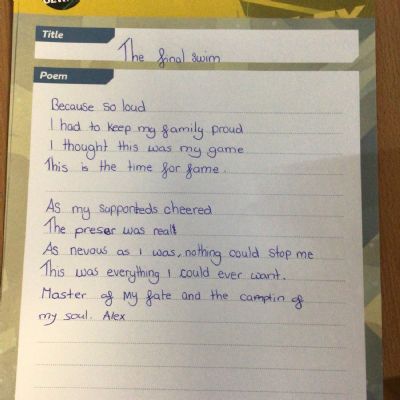 Title
The final swim
Poem
Because so loud
I had to keep my family proud
I thought this was my game
This is the time for fame.
As my supporteds cheered
The preser was realt
As nevous as I was, nothing could stop me
This was everything I could ever want.
Master of My fate and the camptin of
my soul. Alex